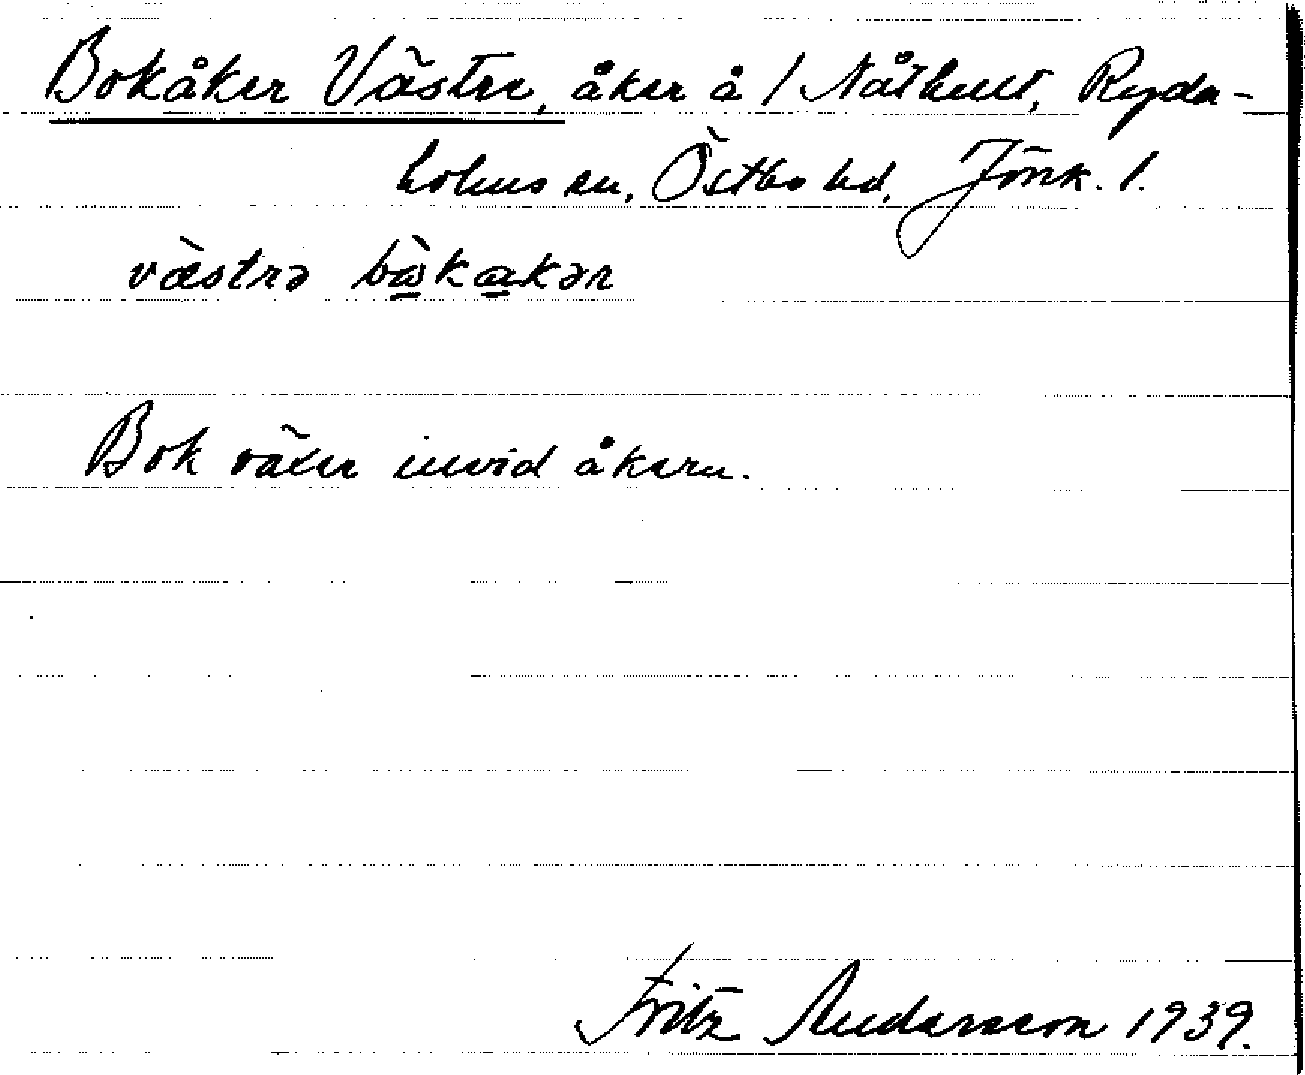 Bokåker Västre, åker å / Nåthult, Ryda-
holms sn, Östbo hd, Jönk. l.
vàstrə bàkakər
Bok växer invid åkern.
Fritz Andersson 1939.